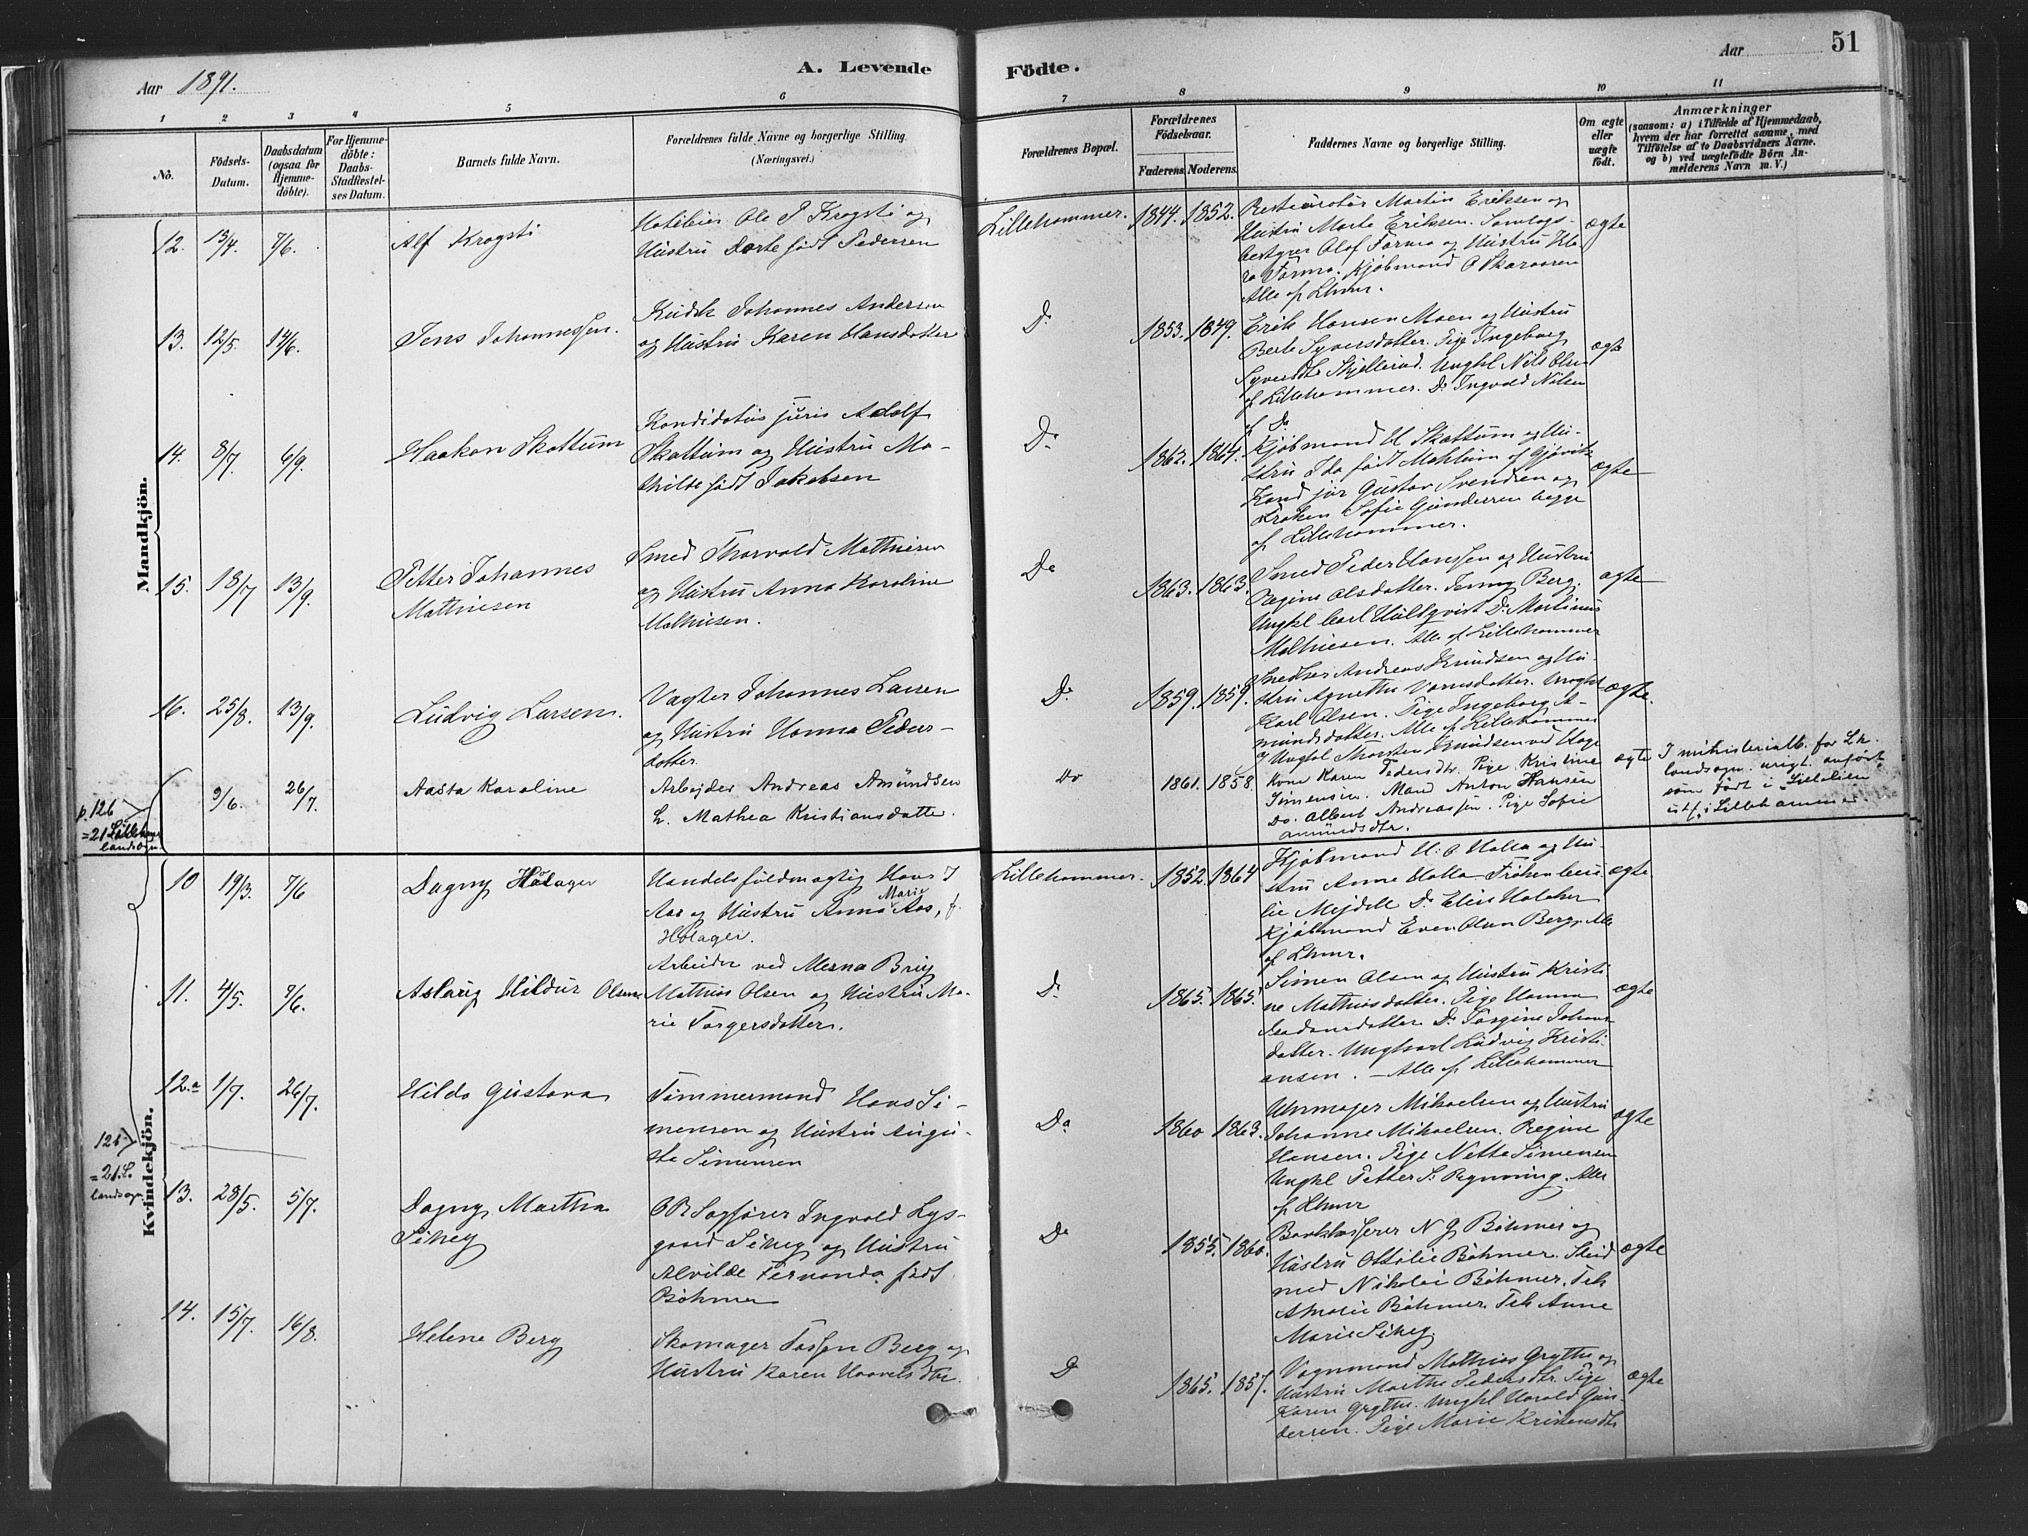 Aar 1891.
A. Levende
Fødte.
Aar
51
1 2 3 4 5 6 7 8 9 10 11
No.
Fødsels-Datum.
Daabsdatum (ogsaa for Hjemmedöbte).
For Hjemmedöbte: Daabs-Stadfestelses Datum.
Barnets fulde Navn.
Forældrenes fulde Navne og borgerlige Stilling. (Næringsvei.)
Forældrenes Bopæl.
Forældrenes Födselsaar.
Faderens. Moderens.
Faddernes Navne og borgerlige Stilling.
Om ægte eller uægte födt.
Anmærkninger
(saasom: a) i Tilfælde af Hjemmedaab, hvem der har forrettet samme, med Tilföielse af to Daabsvidners Navne. og b) ved uægtefödte Börn Anmelderens Navn m. V.)
Mandkjön.
12. 13/4. 7/6. Alf Krogsti
Hoteleier Ole P Krogsti og
Hustru Dorte født Pedersen
Lillehammer. 1844. 1852.
Restauratør Martin Eriksen og
Hustru Marte Eriksen.
bestyrer Olaf Formo og Hustru Kla-
ra Formo. Kjøbmand O Skaraasen
Alle af Lhmr.
ægte
13. 12/5. 14/6. Jens Johannessen.
Kudsk Johannes Andersen
og Hustru Karen Hansdatter
Do 1853. 1849.
Erik Hansen Moen og Hustru
Berte Syversdatter. Pige Ingeborg
Syversdtr Skjellerud. Ungkl Nils Olsen
af Lillehammer. Do Ingvald Nilsen
f Do
ægte
14. 8/7. 6/9. Haakon Skattum
Kandidatus juris Adolf
Skattum og Hustru Ma-
thilde født Jakobsen
Do 1862. 1864.
Kjøbmand H Skattum og Hu-
stru Ida født Mæhlum af Gjøvik
Kand jur Gustav Svendsen og
Frøken Sofie Gundersen begge
af Lillehammer.
ægte
15. 18/7 13/9. Petter Johannes
Mathiesen
Smed Thorvald Mathiesen
og Hustru Anna Karoline
Mathiesen.
Do 1863. 1863.
Smed Peder Hanssen og Hustru
Regine Olsdatter. Jenny Berg.
Ungkl Carl Hultqvist Do Martinus
Mathiesen. Alle af Lillehammer
ægte
16. 25/8. 13/9. Ludvig Larsen.
Vagter Johannes Larsen
og Hustru Hanna Peders-
datter.
Do 1859. 1859.
Snedker Andreas Knudsen og Hu-
stru Agnethe
Karl Olsen. Pige Ingeborg A-
mundsdatter. Alle af Lillehammer
og Ungkl Thorsten Knudsen ved Hage
ægte.
p. 126
=21 Lilleham
landsogn.
9/6. 26/7. Aasta Karoline
Arbejder Andreas Amundsen
h. Mathea Kristiansdatter.
Do 1861. 1858
Kone Karen Pedersdtr. Pige Kristine
Simensen. Mand Anton Hansen
Do. Albert Andreassen. Pige Sofie
Amundsdtr.
ægte
I ministerialb. for Lh.
landsogn urigt. anført
som født i "Lieleien
istf. i Lillehammer.
Kvindekjön.
10 19/3. 7/6 Dagny Holager
Handelsfuldmægtig Hans J
Aas og Hustru Anna Marie Aas, f.
Holager.
Lillehammer. 1852. 1864
Kjøbmand H. O Holla og Hu-
stru Anne Holla Frøken Ceci-
lie Mejdell Do Elise Holaker
Kjøbmand Even Olsen Berg. Alle
af Lhmr.
ægte
11. 4/5. 7/6. Aslaug Hildur Olsen
Arbeider ved Mesna Brug
Mathias Olsen og Hustru Ma-
rie Torgersdatter.
Do 1865. 1865.
Simen Olsen og Hustru Kristi-
ne Mathiasdatter. Pige Hanna
Do Torgine Johans-
datter. Ungkarl Ludvig Kristi-
ansen. - Alle af Lillehammer
ægte
12.a 1/7. 26/7. Hilda Gustava
Tømmermand Hans Si-
mensen og Hustru Augu-
sta Simensen
Do 1860 1863.
Uhrmager Mikaelsen og Hustru
Johanne Mikaelsen. Regine
Hansen. Pige Netta Simensen
Ungkl Petter S. Bryvning. Alle
af Lhmr
ægte
126
=21 L.
landsogn.
13. 28/5. 5/7. Dagny Martha
Siheg
OR Sagfører Ingvald Lys-
gaard Siheg og Hustru
Alvilde Fernanda født
Bøhmer
Do 1855. 1860.
Bankkasserer N G Bøhmer og
Hustru Ottilie Bøhmer. Stud
med Nikolai Bøhmer. Frk
Amalie Bøhmer. Frk Anne
Marie Siheg.
ægte
14. 15/7. 16/8. Helene Berg
Skomager Tossen Berg og
Hustru Karen Haavelsdtr.
D 1865. 1857.
Vognmand Mathias Grytte og
Hustru Marthe Pedersdtr. Pige
Karen Grytte. Ungkl Harald Gun-
dersen. Pige Marie Kristensdtr
ægte